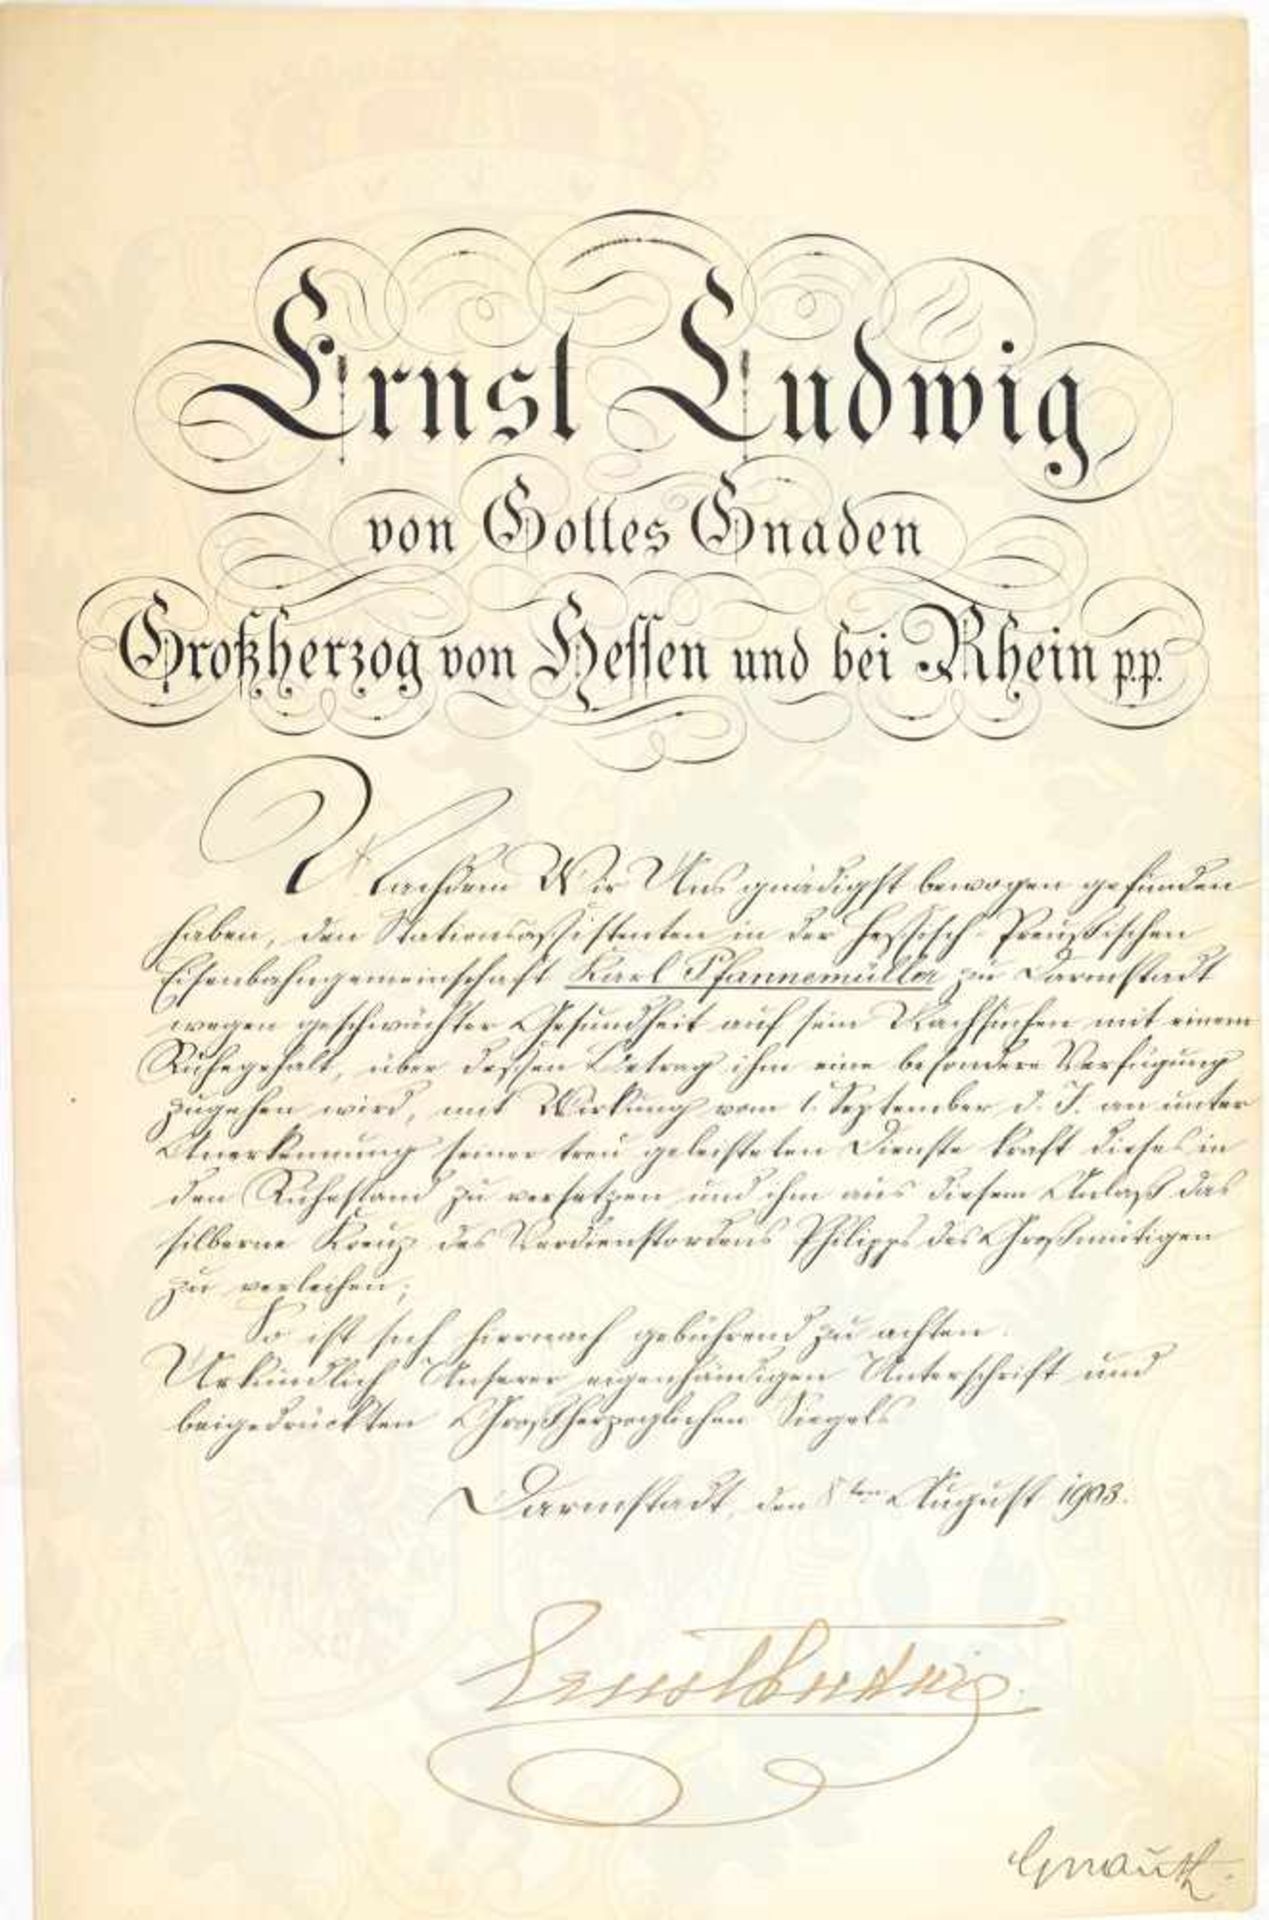 Ernst Ludwig
von Gottes Gnaden
Großherzog von Hessen und bei Rhein p.p.
Nachdem Wir Uns gnädigst bewogen gefunden
haben, den Stationsassistenten in der Hessisch-Preußischen
Eisenbahngemeinschaft Karl Pfannemüller zu Darmstadt
wegen geschwächter Gesundheit auf sein Nachsuchen mit einem
Ruhegehalt, über dessen Betrag ihm eine besondere Verfügung
zugehen wird, mit Wirkung vom 1. September d. J. an unter
Anerkennung seiner treu geleisteten Dienste kraft dieses in
den Ruhestand zu versetzen und ihm aus diesem Anlaß das
silberne Kreuz des Verdienstordens Philipps des Großmütigen
zu verleihen;
So ist sich hiernach gebührend zu achten.
Urkundlich Unserer eigenhändigen Unterschrift und
beigedrückten Großherzoglichen Siegels
Darmstadt, den 8ten August 1903.
Ernst Ludwig.
Gnauth.